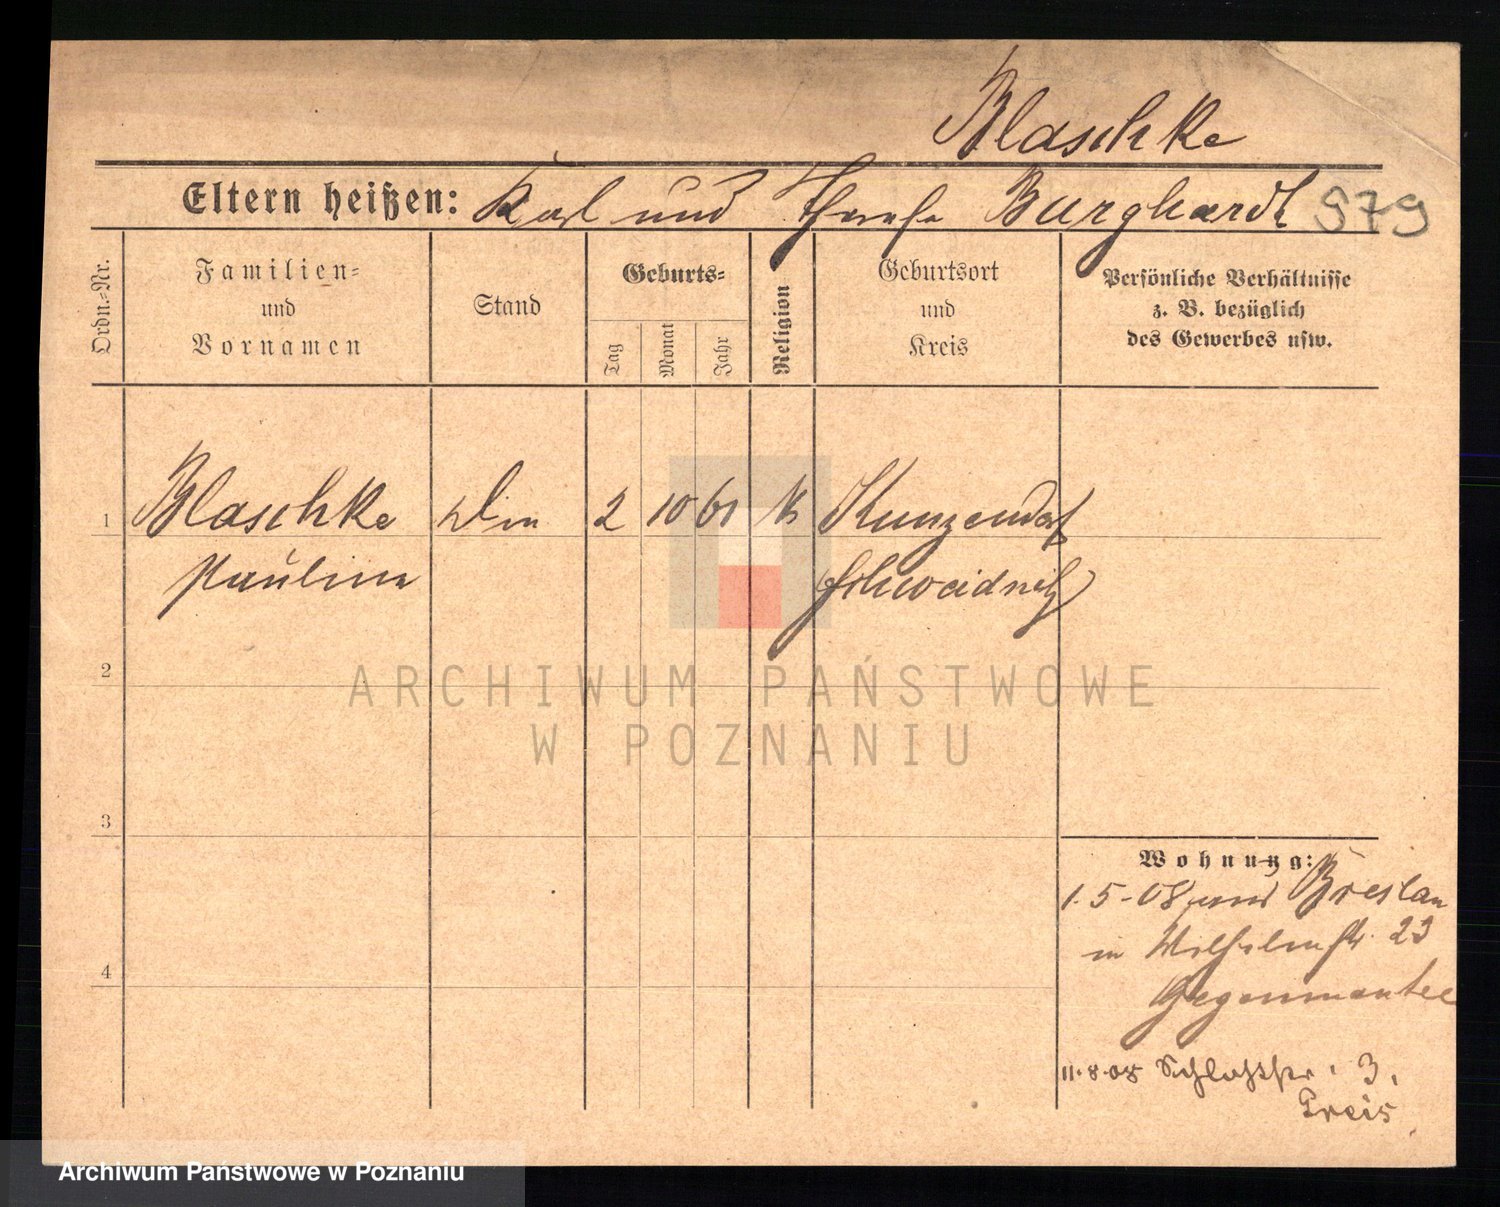 Blaschke
Eltern heißen: Karl und Therese Burghardt 979
Ordn.-Nr.
Familien-
und
Vornamen
Stand
Geburts-
Tag
Monat
Jahr
Religion
Geburtsort
und
Kreis
Persönliche Verhältnisse
z. B. bezüglich
des Gewerbes usw.
1 Blaschke 2 10 61 K Kunzendorf
Pauline Schweidnitz
2
ARCHIWUM PAŃSTWOWE
W POZNANIU
3
Wohnung:
1.5-08 von Breslau
in Wilhelmstr. 23
4
11.8.08 Schloßstr. 3.
Preis
Archiwum Państwowe w Poznaniu